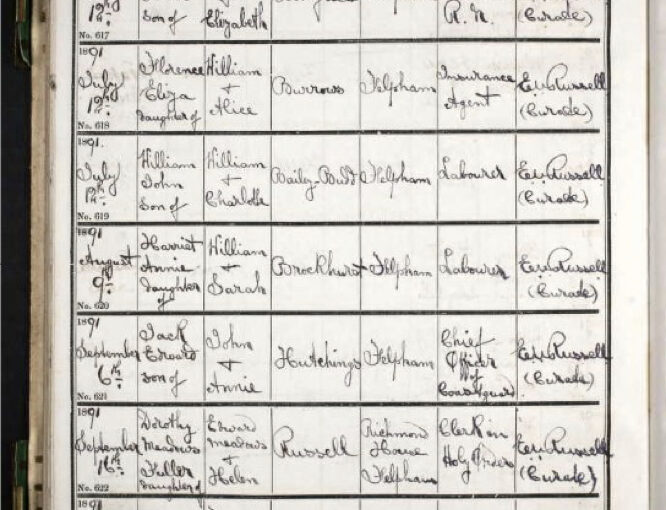 12th son of Elizabeth R.N. (Curate)
No. 617
1891 July 12th Florence Eliza daughter of William + Alice Burrows Felpham Insurance Agent E.W. Russell (Curate)
No. 618
1891 July 12th William John son of William + Charlotte Baily-Budd Felpham Labourer E.W. Russell (Curate)
No. 619
1891 August 9th Harriet Annie daughter of William + Sarah Brockhurst Felpham Labourer E.W. Russell (Curate)
No. 620
1891 September 6th Jack Edward son of John + Annie Hutchings Felpham Chief Officer of Coastguard E.W. Russell (Curate)
No. 621
1891 September 16th Dorothy Meadows Fuller daughter of Edward Meadows + Helen Russell Richmond House Felpham Clerk in Holy Orders E.W. Russell (Curate)
No. 622
1891